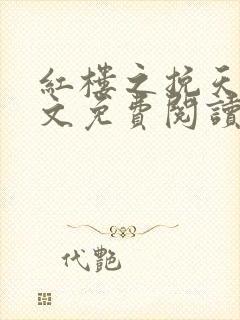 紅樓之挽天
文免費閱讀
代艷